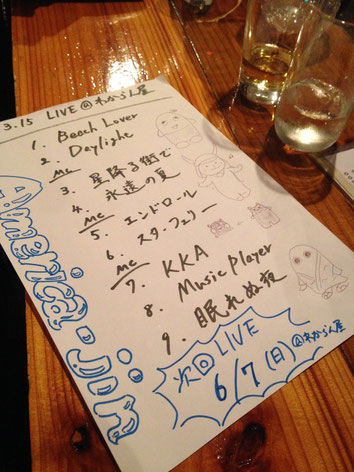 3.15 LIVE @ わからん屋
1. Beach Lover
2. Daylight
MC
3. 星降る街で
4. 永遠の夏
MC
5. エンドロール
6. スターフェリー
MC
7. KKA
8. Music Player
9. 眠れぬ夜
America-jin
次回 LIVE
6/7(日)
@わからん屋